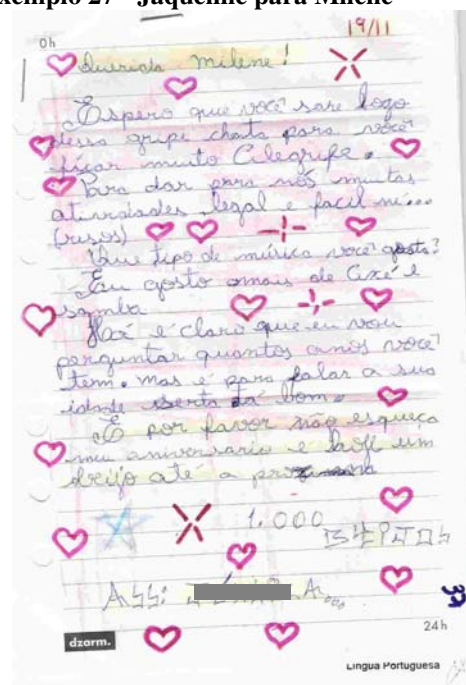 Exemplo 27 - Jaqueline para Milene
19/11
0h
Querida milene!
Espero que você sare logo
dessa gripe chata para você
ficar muito
Para dar para nós muitas
atividades legal e facil ne...
(risos)
Que tipo de música você gosta?
Eu gosto mais de axé e
samba
é claro que eu vou
perguntar quantos anos você
tem. mas é para falar a sua
idade serta tá bom.
E por favor não esqueça
meu aniversario e hoje um
beijo até a
1.000
BEIJOS
ASS:
dzarm.
24h
Língua Portuguesa